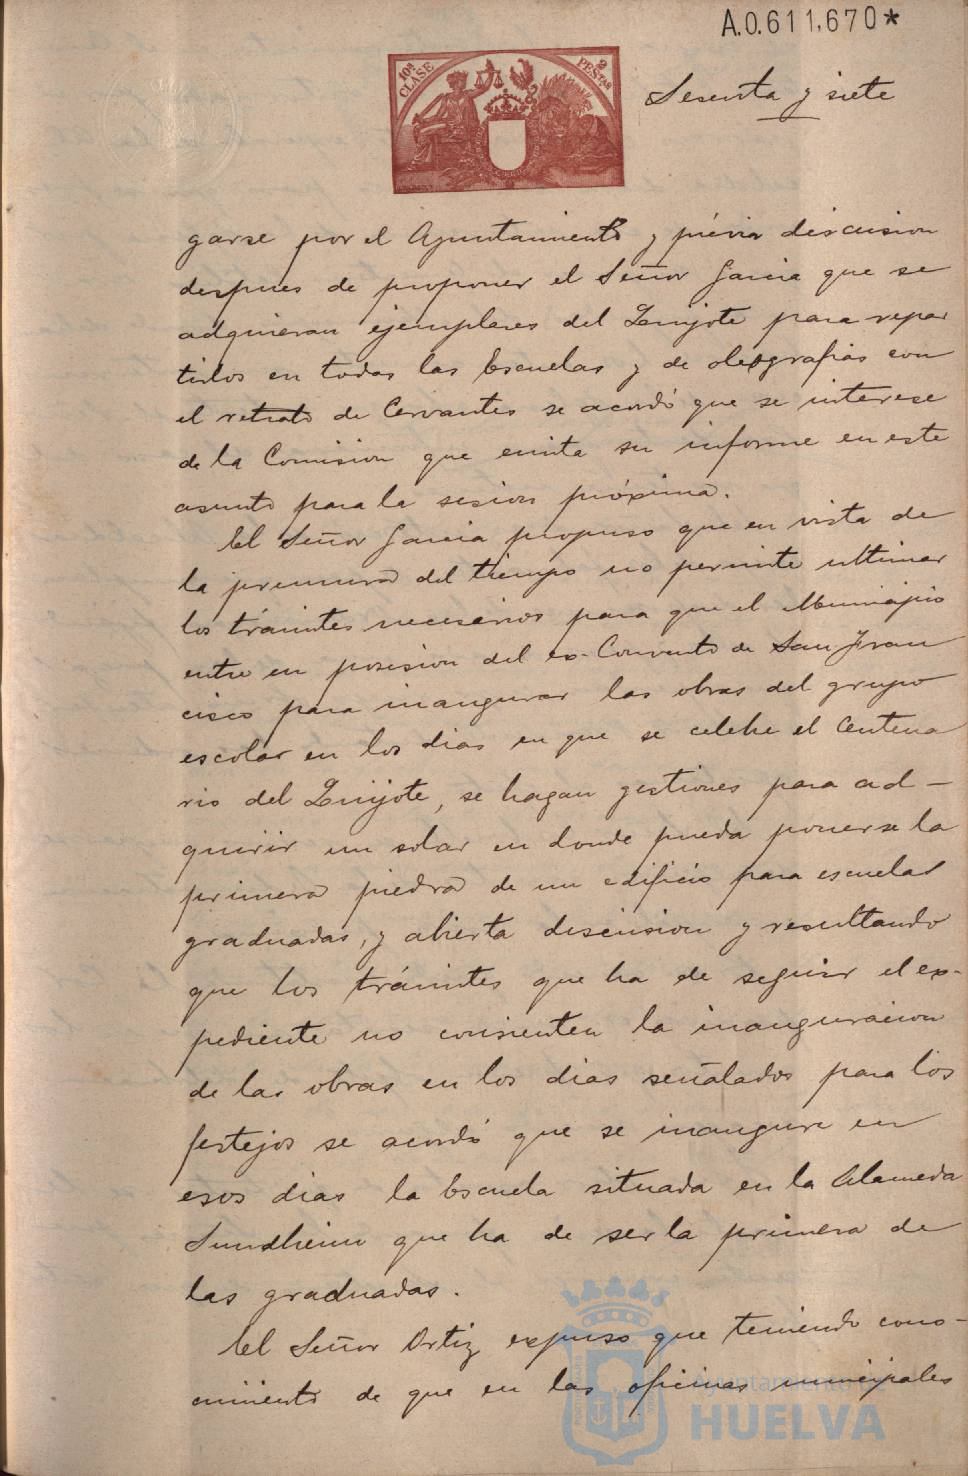 A.0.611,670*
10ª CLASE
2 PESTAS
Sesenta y siete
garse por el Ayuntamiento y prévia discusion
despues de proponer el Señor Garcia que se
adquieran ejemplares del Quijote para repar
tirlos en todas las Escuelas y de oleografias con
el retrato de Cervantes se acordó que se interese
de la Comision que emita su informe en este
asunto para la sesion próxima.
El Señor Garcia propuso que en vista de
la premura del tiempo no permite ultimar
los trámites necesarios para que el Municipio
entre en posesion del ex-Convento de San Fran
cisco para inaugurar las obras del grupo
escolar en los dias en que se celebre el Centena
rio del Quijote, se hagan gestiones para ad-
quirir un solar en donde pueda ponerse la
primera piedra de un edificio para escuelas
graduadas, y abierta discusion y resultando
que los trámites que ha de seguir el ex-
pediente no consienten la inauguracion
de las obras en los dias señalados para los
festejos se acordó que se inaugure en
esos dias la Escuela situada en la Alameda
Sundheim que ha de ser la primera de
las graduadas.
El Señor Ortiz expuso que teniendo cono-
cimiento de que en las oficinas municipales
Ayuntamiento de
HUELVA